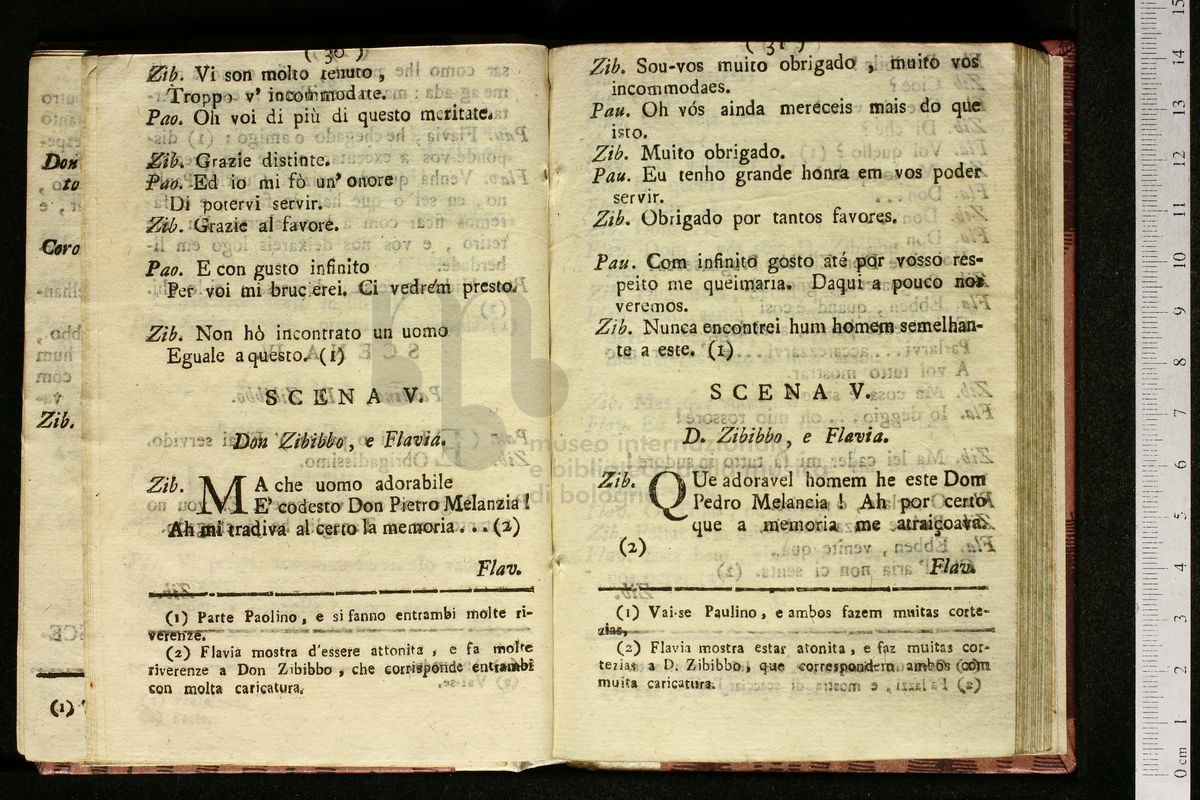 ( 30 )
Zib. Vi son molto tenuto ,
Troppo v' incommodate.
Pao. Oh voi di più di questo meritate.
Zib. Grazie distinte.
Pao. Ed io mi fò un' onore
Di potervi servir.
Zib. Grazie al favore.
Pao. E con gusto infinito
Per voi mi brucierei. Ci vedrem presto.
Zib. Non hò incontrato un uomo
Eguale a questo. (1)
SCENA V.
Don Zibibbo, e Flavia.
Zib. MA che uomo adorabile
E' codesto Don Pietro Melanzia !
Ah mi tradiva al certo la memoria... (2)
Flav.
(1) Parte Paolino, e si fanno entrambi molte ri-
verenze.
(2) Flavia mostra d'essere attonita , e fa molte
riverenze a Don Zibibbo , che corrisponde entrambi
con molta caricatura.
( 31 )
Zib. Sou-vos muito obrigado , muito vos
incommodaes.
Pau. Oh vós ainda mereceis mais do que
isto.
Zib. Muito obrigado.
Pau. Eu tenho grande honra em vos poder
servir.
Zib. Obrigado por tantos favores.
Pau. Com infinito gosto até por vosso res-
peito me queimaria. Daqui a pouco nos
veremos.
Zib. Nunca encontrei hum homem semelhan-
te a este. (1)
SCENA V.
D. Zibibbo, e Flavia.
Zib. QUe adoravel homem he este Dom
Pedro Melancia ! Ah por certo
que a memoria me atraiçoava.
(2)
Flav.
(1) Vai-se Paulino, e ambos fazem muitas corte-
zias,
(2) Flavia mostra estar atonita, e faz muitas cor-
tezias a D. Zibibbo, que correspondem ambos com
muita caricatura.
Don
to
Coro
Zib.
(1)
museo internazionale
e biblioteca della musica
di bologna
0 cm 1 2 3 4 5 6 7 8 9 10 11 12 13 14 15